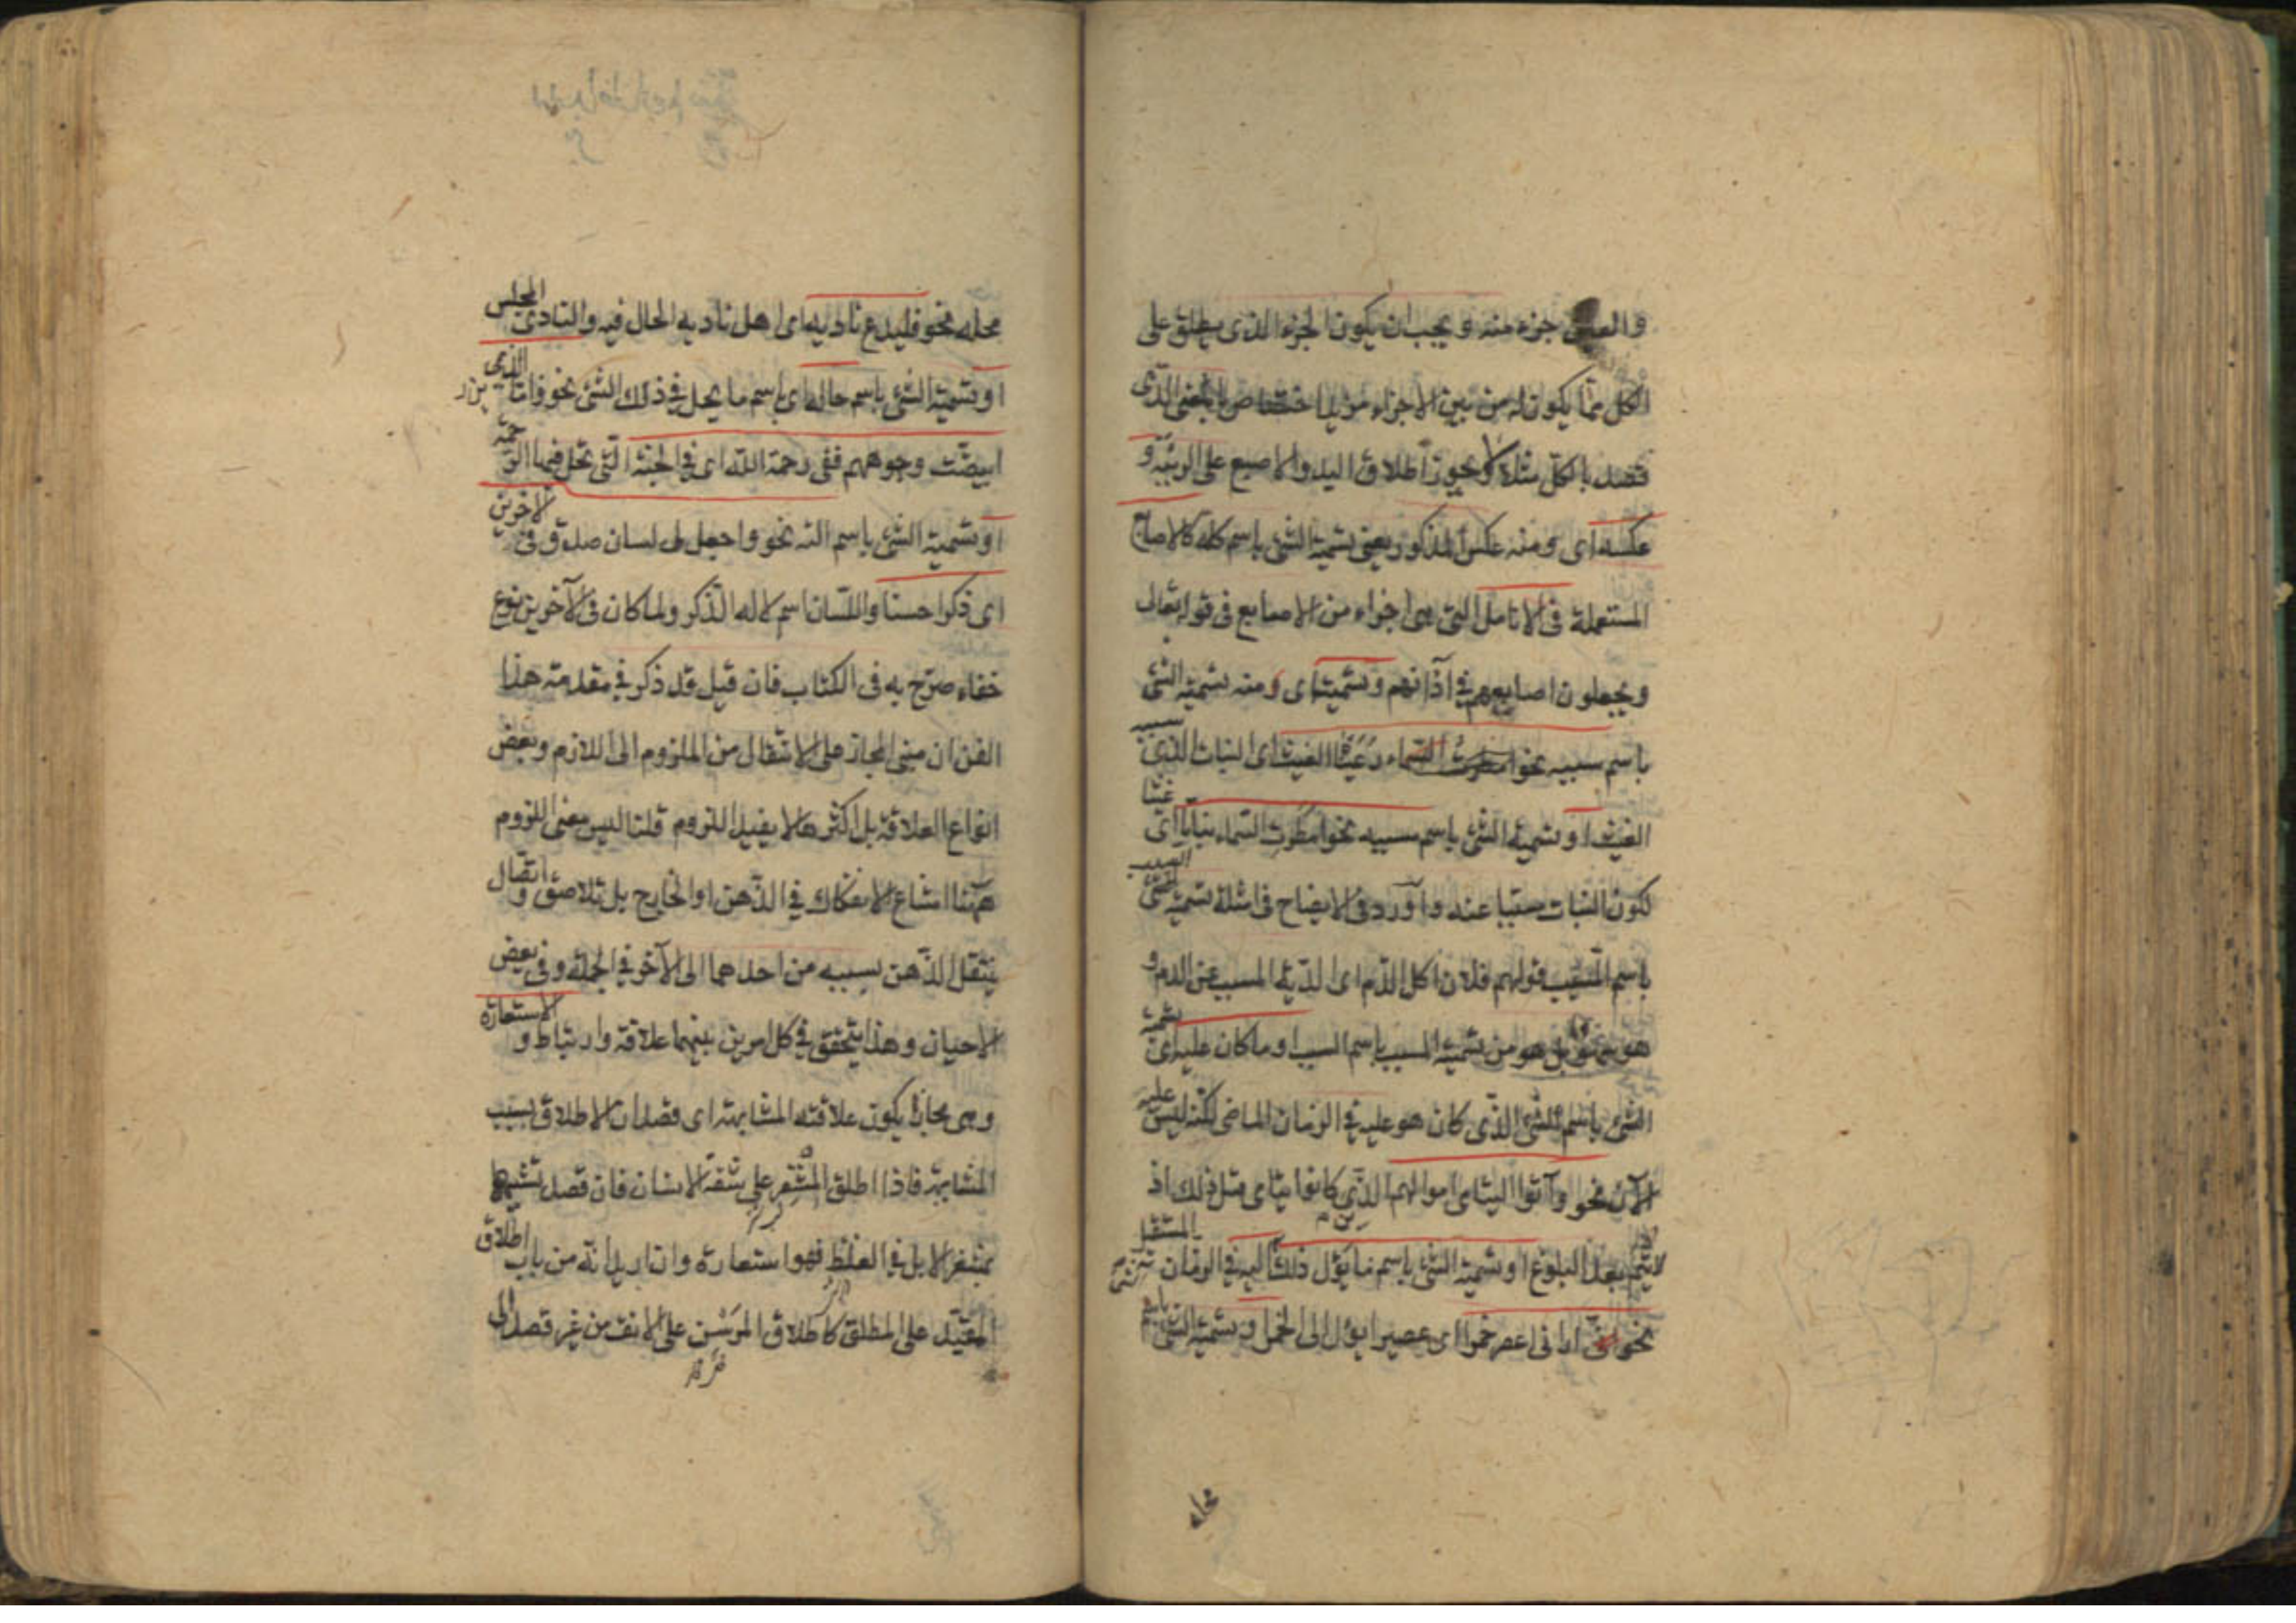 والعين جزء منه ويجب ان يكون الجزء الذى يطلق على
الكل مما يكون له من بين الاجزاء مزيد اختصاص بالمعنى الذى
قصد بالكل مثلا لا يجوز اطلاق اليد والاصبع على الربيئة و
عكسه اى ومنه عكس المذكور يعنى تسمية الشئ باسم كله كالاصابع
المستعملة فى الانامل التى هى اجزاء من الاصابع فى قوله تعالى
ويجعلون اصابعهم فى آذانهم وتسميته اى ومنه تسمية الشئ
باسم سببه نحو رعينا الغيث اى النبات الذى سببه
الغيث او تسمية الشئ باسم مسببه نحو امطرت السماء نباتا اى غيثا
لكون النبات مسببا عنه واورد فى الايضاح فى امثلة تسمية السبب
باسم المسبب قولهم فلان اكل الدم اى الدية المسببة عن الدم و
هو سهو بل هو من تسمية المسبب باسم السبب او ما كان عليه اى تسمية
الشئ باسم الشئ الذى كان هو عليه فى الزمان الماضى لكنه ليس عليه
الآن نحو وآتوا اليتامى اموالهم الذين كانوا يتامى قبل ذلك اذ
لا يتم بعد البلوغ او تسمية الشئ باسم ما يؤل ذلك اليه فى الزمان المستقبل
نحو انى ارانى اعصر خمرا اى عصيرا يؤل الى الخمر او تسمية الشئ باسم
محله
محله نحو فليدع ناديه اى اهل ناديه الحال فيه والنادى المجلس
او تسمية الشئ باسم حاله اى باسم ما يحل فى ذلك الشئ نحو واما الذين
ابيضت وجوههم ففى رحمة الله اى فى الجنة التى تحل فيها الرحمة
او تسمية الشئ باسم آلته نحو واجعل لى لسان صدق فى الآخرين
اى ذكرا حسنا واللسان اسم لآلة الذكر ولما كان فى الآخرين نوع
خفاء صرح به فى الكتاب فان قيل قد ذكر فى مقدمة هذا
الفن ان مبنى المجاز على الانتقال من الملزوم الى اللازم وبعض
انواع العلاقة بل اكثرها لا يفيد اللزوم قلنا ليس معنى اللزوم
ههنا امتناع الانفكاك فى الذهن او الخارج بل تلاصق واتصال
ينتقل الذهن بسببه من احدهما الى الآخر فى الجملة وفى بعض
الاحيان وهذا يتحقق فى كل امرين بينهما علاقة وارتباط والاستعارة
وهى مجاز يكون علاقته المشابهة اى قصد ان الاطلاق بسبب
المشابهة فاذا اطلق المشفر على شفة الانسان فان قصد تشبيهها
بمشفر الابل فى الغلظ فهو استعارة وان اريد انه من باب اطلاق
المقيد على المطلق كاطلاق المرسن على الانف من غير قصد الى